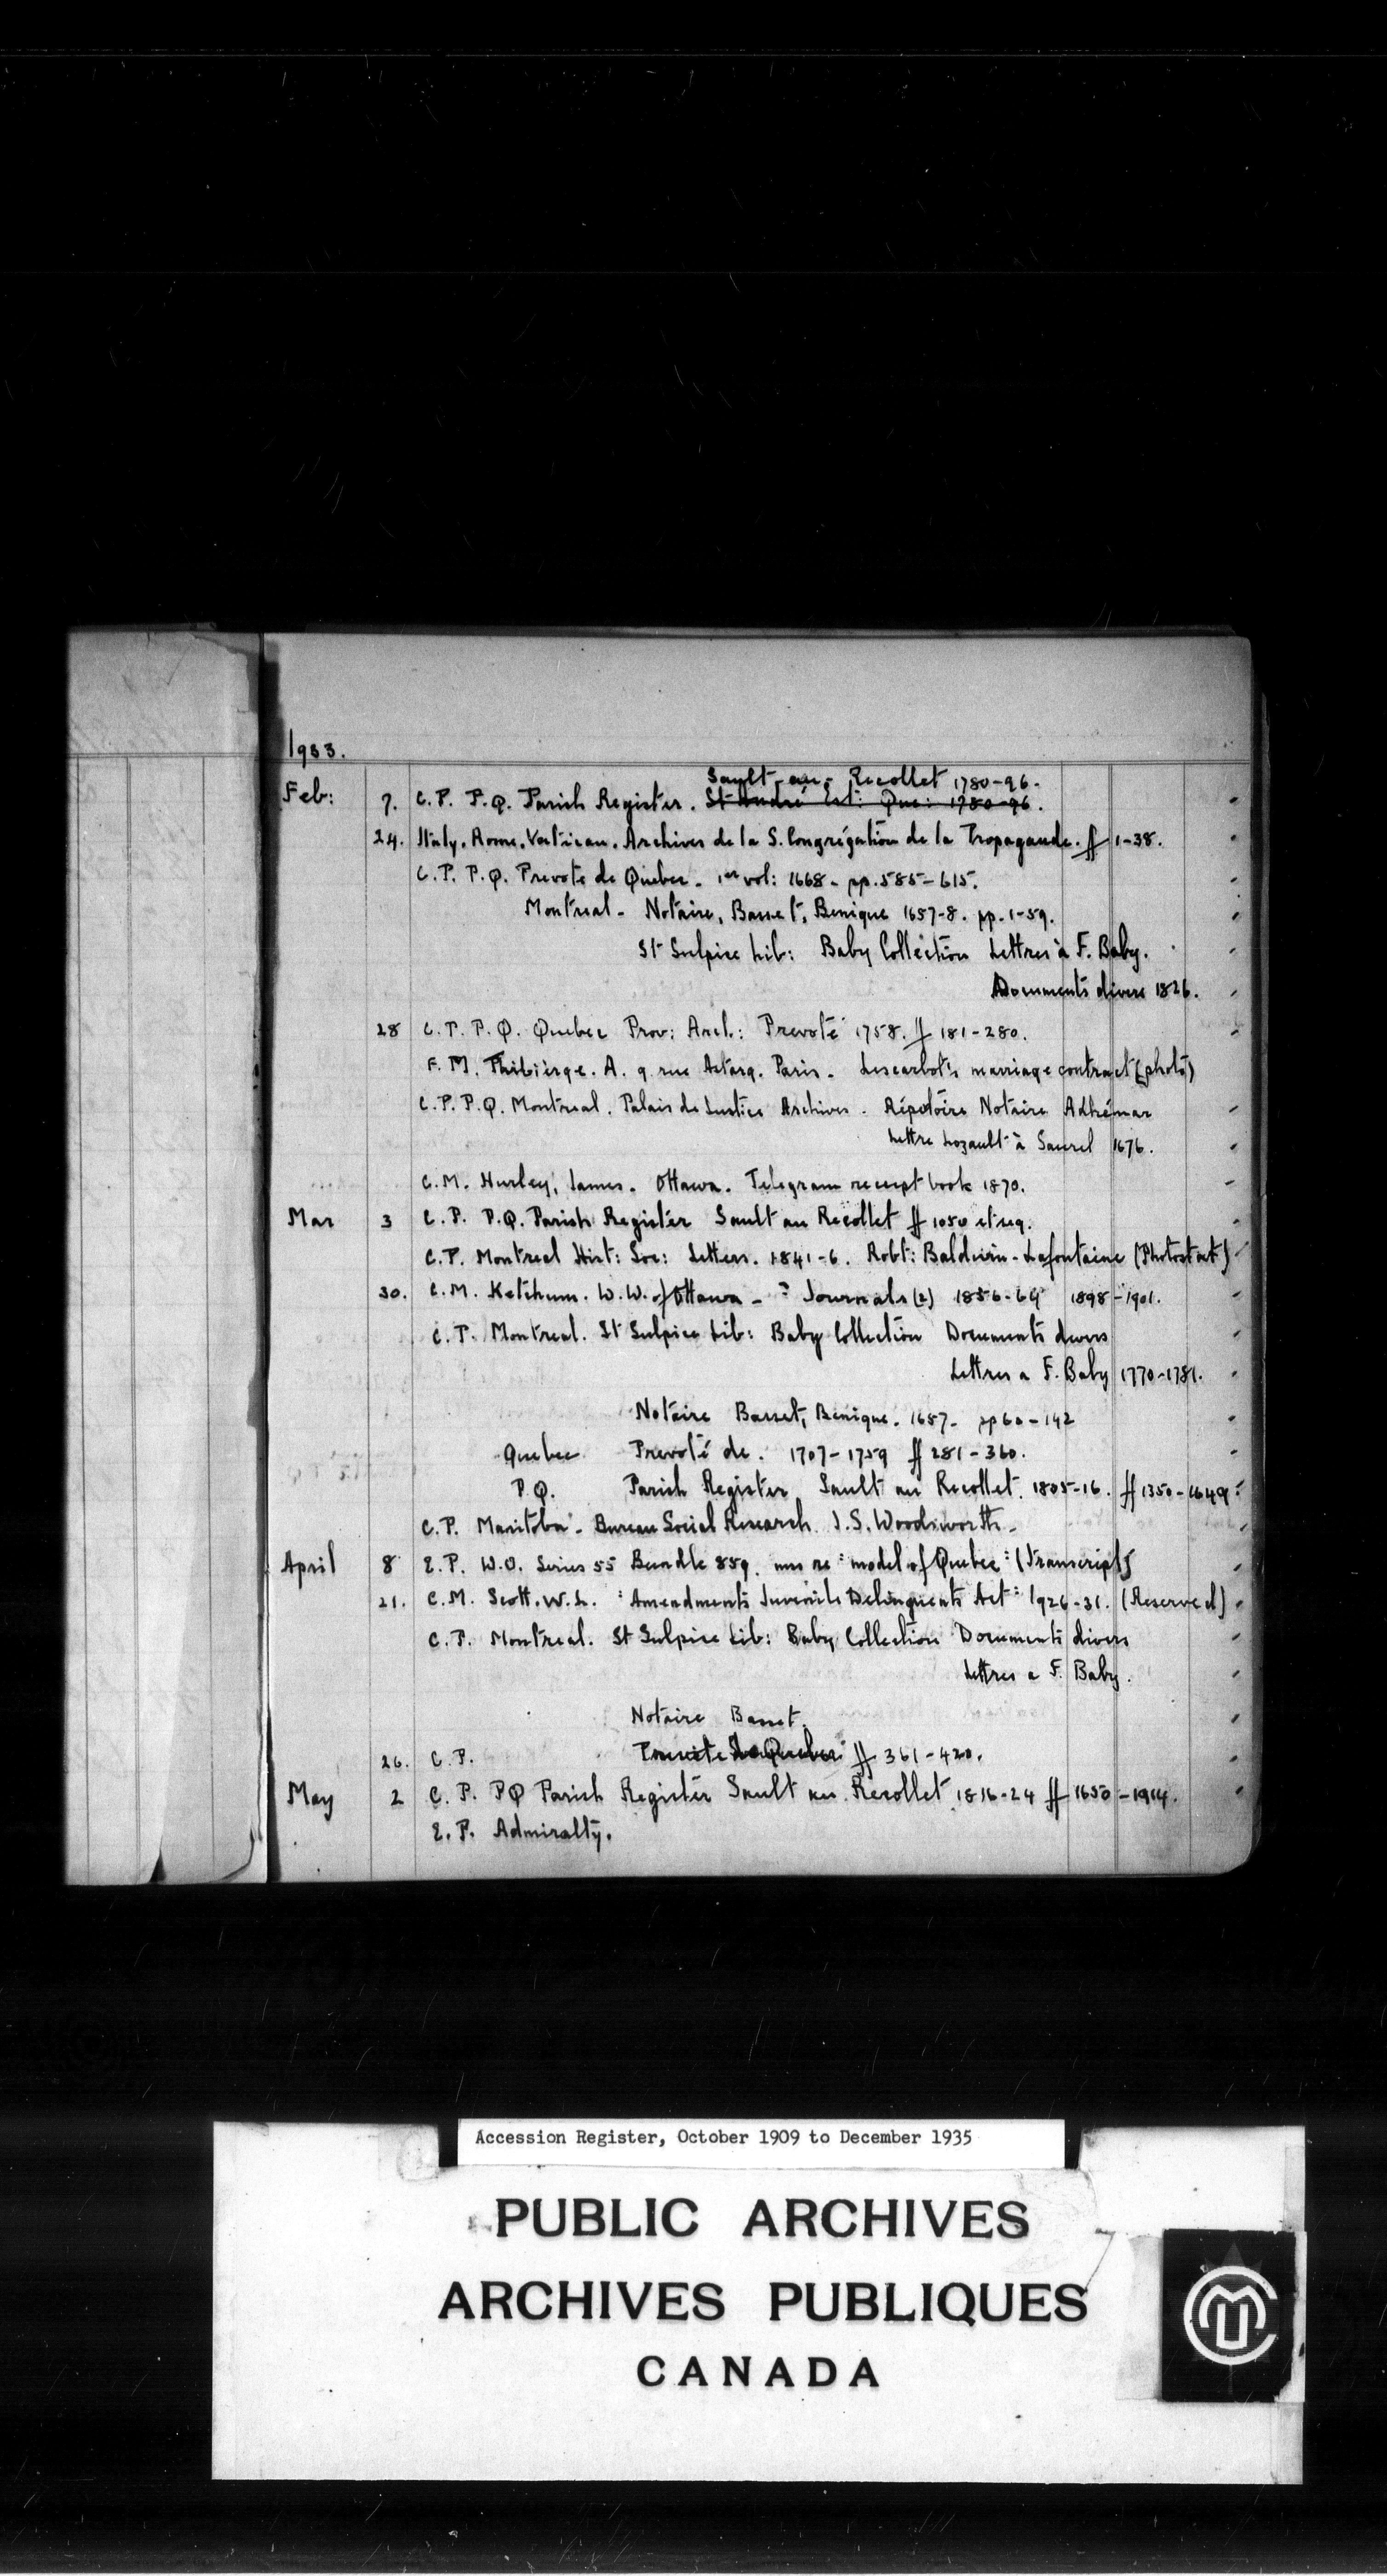 1933.
Sault-au-Recollet 1780-96.
Feb: 7. C.P. P.Q. Parish Register. St André Est: Que: 1780-96.
24. Italy. Rome. Vatican. Archives de la S. Congrégation de la Propagande. ff 1-38.
C.P. P.Q. Prevote de Quebec. 1er vol: 1668- pp.585-615.
Montreal - Notaire, Basset, Benique 1657-8. pp. 1-59.
St Sulpice Lib: Baby Collection Lettres à F. Baby.
Documents divers 1826.
28 C.P. P.Q. Quebec Prov: Arch: Prevoté 1758. ff 181-280.
F.M. Thibièrge. A. 9 rue Astorg. Paris - Lescarbot's marriage contract (photo)
C.P. P.Q. Montreal. Palais de Justice Archives. Répetoire Notaire Adhémar
Lettre à Saurel 1676.
C.M. Hurley, James. Ottawa. Telegram receipt book 1870.
Mar 3 C.P. P.Q. Parish Register Sault au Recollet ff 1050 et seq.
C.P. Montreal Hist: Soc: Letters. 1841-6. Robt: Baldwin-Lafontaine (Photostat)
30. C.M. Ketchum. W.W. of Ottawa - Journals (2) 1856-69 1898-1901.
C.P. Montreal. St Sulpice Lib: Baby Collection Documents divers
Lettres a F. Baby 1770-1781.
Notaire Basset, Benique. 1657- pp 60-142
Quebec Prevoté de. 1707-1759 ff 281-360.
P.Q. Parish Register Sault au Recollet. 1805-16. ff 1350-1649.
C.P. Manitoba - Bureau Social Research J.S. Woodsworth -
April 8 E.P. W.O. Series 55 Bundle 859. mss re "model of Quebec" (Transcript)
21. C.M. Scott. W.L. "Amendments Juvenile Delinquents Act" 1926-31. (Reserved)
C.P. Montreal. St Sulpice Lib: Baby Collection Documents divers
Lettres a F. Baby.
Notaire Basset.
26. C.P. Prevote de Quebec ff 361-420.
May 2 C.P. PQ Parish Register Sault au Recollet 1816-24 ff 1650-1914.
E.P. Admiralty.
Accession Register, October 1909 to December 1935
PUBLIC ARCHIVES
ARCHIVES PUBLIQUES
CANADA